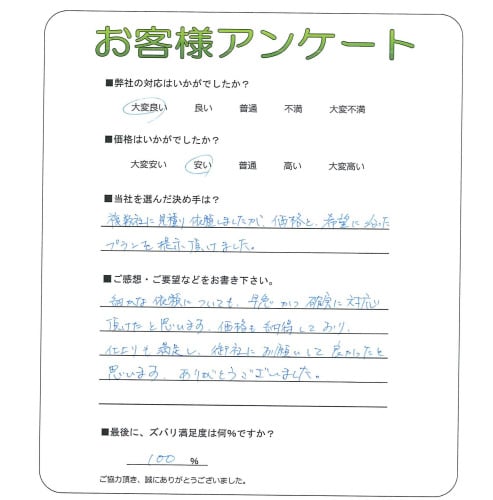 お客様アンケート
■弊社の対応はいかがでしたか？
大変良い 良い 普通 不満 大変不満
■価格はいかがでしたか？
大変安い 安い 普通 高い 大変高い
■当社を選んだ決め手は？
複数社に見積り依頼しましたが、価格と、希望に沿った
プランを提示頂けました。
■ご感想・ご要望などをお書き下さい。
細かな依頼についても、早急かつ確実に対応
頂けたと思います。価格も納得しており、
仕上りも満足し、御社にお願いして良かったと
思います。ありがとうございました。
■最後に、ズバリ満足度は何％ですか？
100 %
ご協力頂き、誠にありがとうございました。